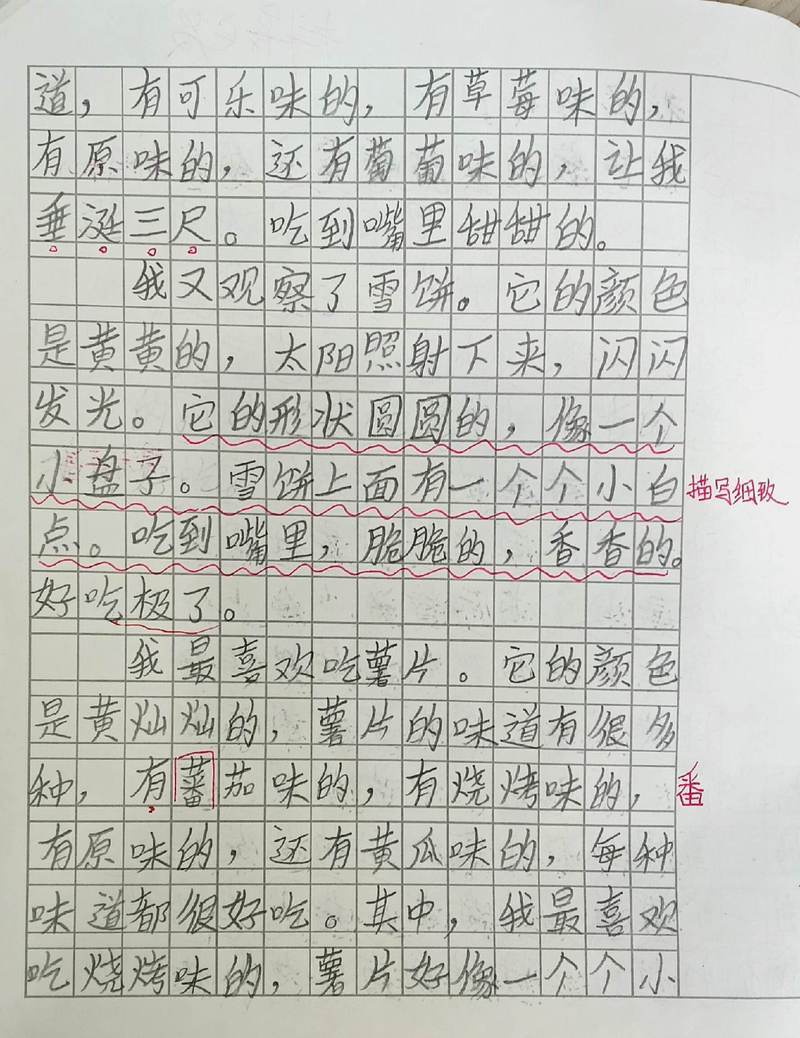 道，有可乐味的，有草莓味的，
有原味的，还有葡萄味的，让我
垂涎三尺。吃到嘴里甜甜的。
我又观察了雪饼。它的颜色
是黄黄的，太阳照射下来，闪闪
发光。它的形状圆圆的，像一个
小盘子。雪饼上面有一个个小白
描写细致
点。吃到嘴里，脆脆的，香香的。
好吃极了。
我最喜欢吃薯片。它的颜色
是黄灿灿的，薯片的味道有很多
种，有蕃茄味的，有烧烤味的，
番
有原味的，还有黄瓜味的，每种
味道都很好吃。其中，我最喜欢
吃烧烤味的，薯片好像一个个小